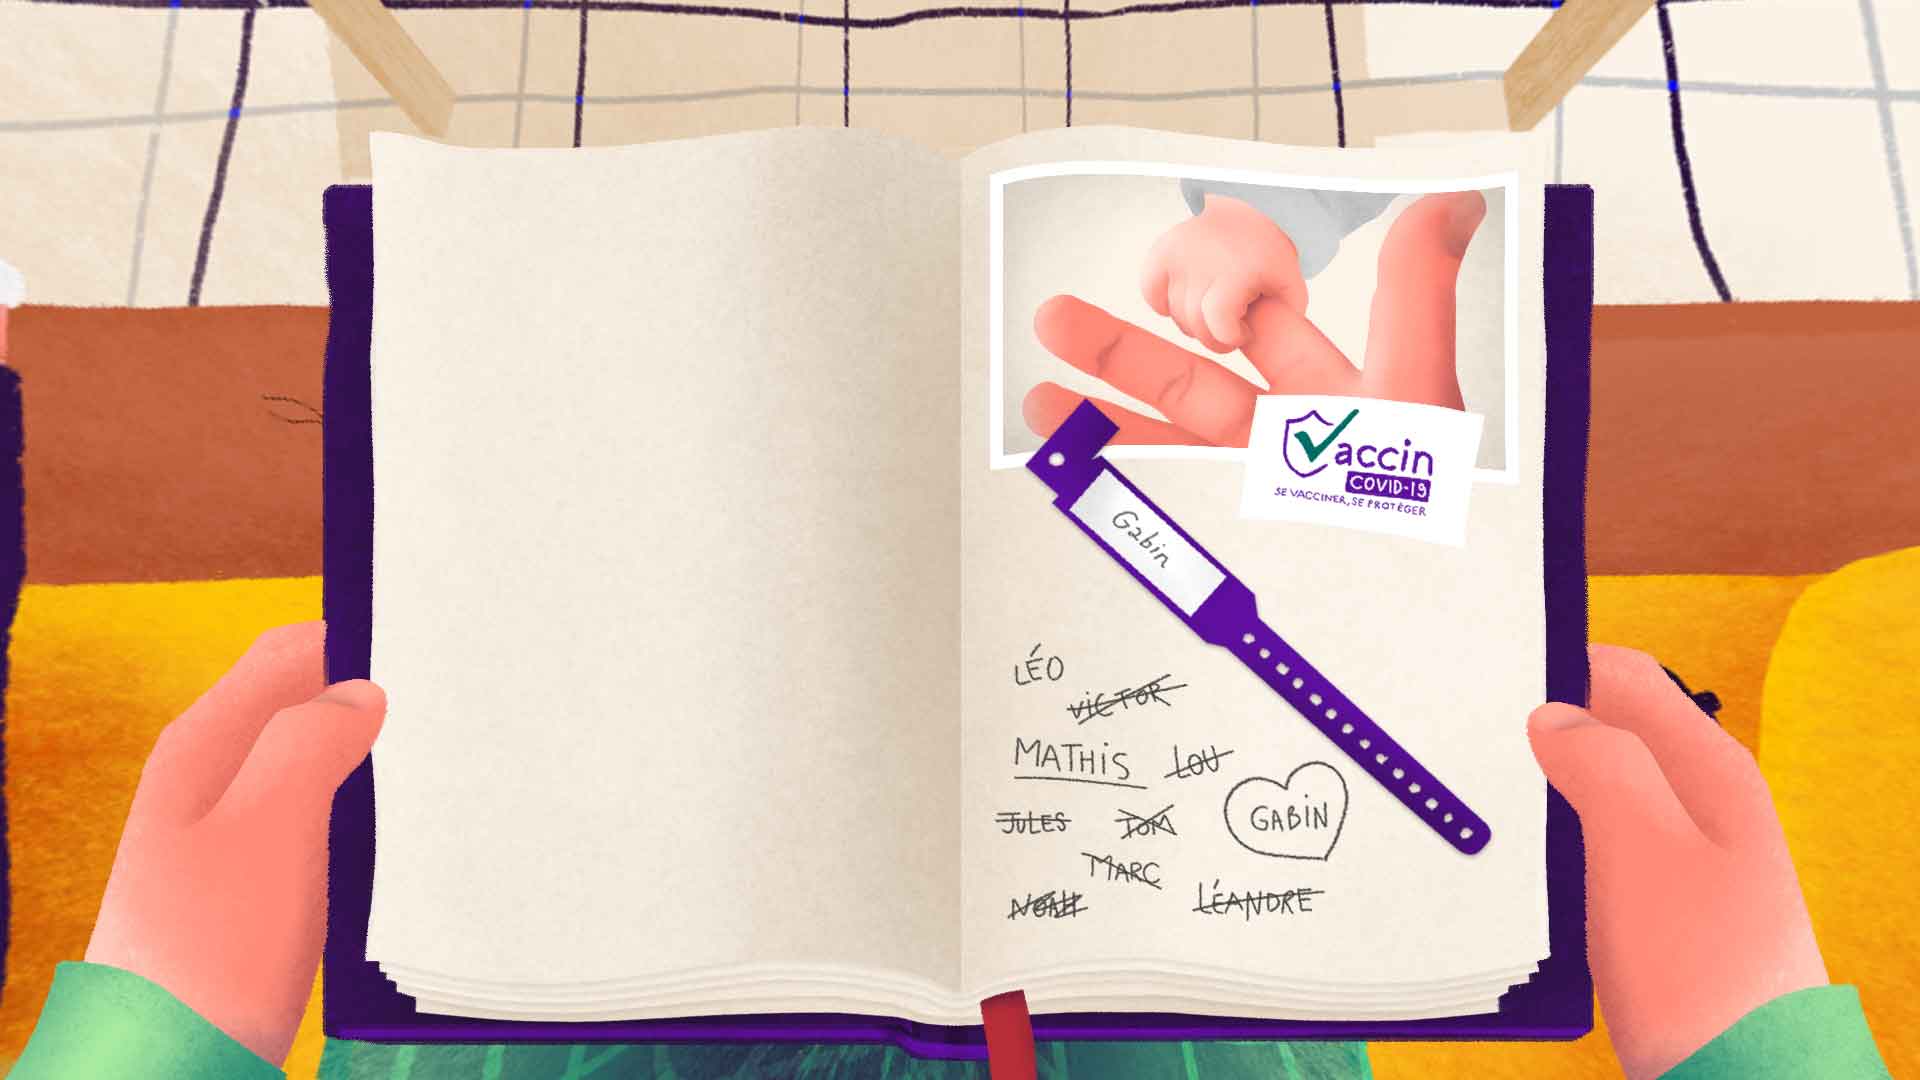 Vaccin
COVID-19
SE VACCINER, SE PROTÉGER
Gabin
LÉO
VICTOR
MATHIS LOU
JULES TOM GABIN
MARC
NOAH LÉANDRE